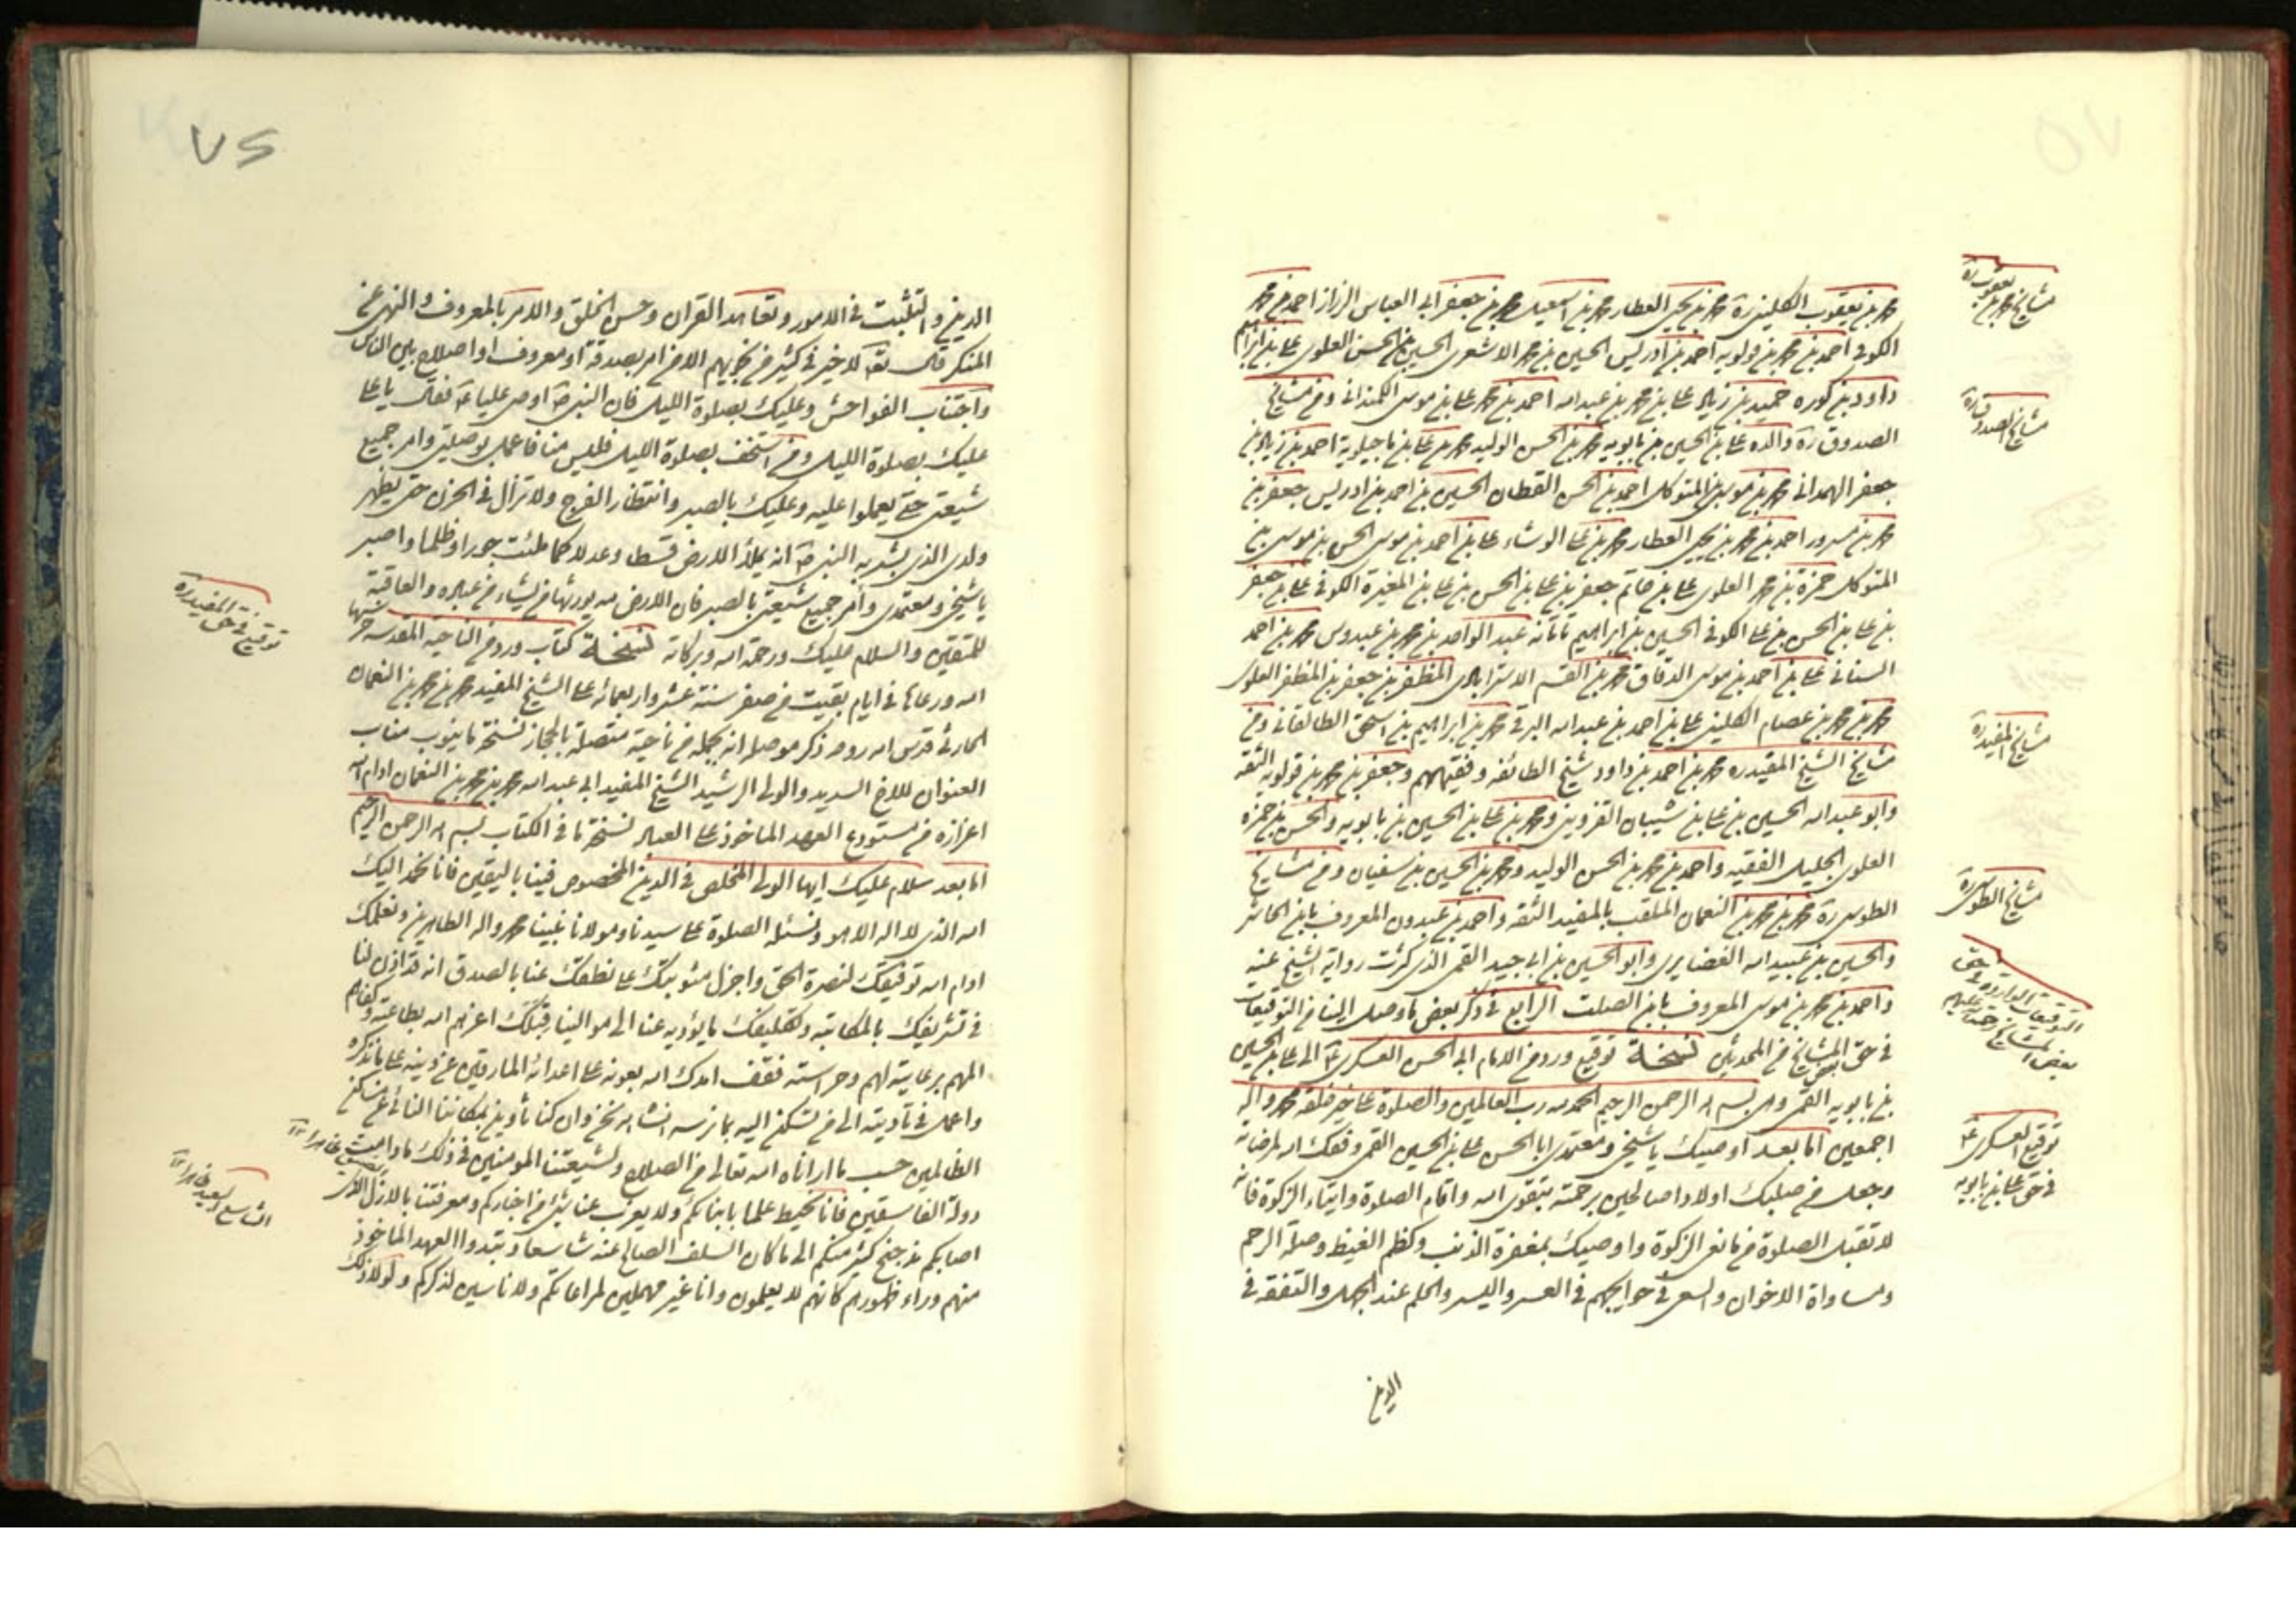 محمد بن يعقوب الكليني ره محمد بن يحيى العطار محمد بن اسمعيل محمد بن جعفر ابي العباس الرزاز احمد بن محمد
الكوفي احمد بن محمد بن قولويه احمد بن ادريس الحسين بن محمد الاشعري الحسين بن الحسن العلوي علي بن ابراهيم
داود بن كوره حميد بن زياد علي بن محمد بن عبد الله احمد بن محمد علي بن موسى الكمنداني ومن مشايخ
الصدوق ره والده علي بن الحسين بن بابويه محمد بن الحسن الوليد محمد بن علي بن ماجيلويه احمد بن زياد بن
جعفر الهمداني محمد بن موسى بن المتوكل احمد بن الحسن القطان الحسين بن احمد بن ادريس جعفر بن
محمد بن مسرور احمد بن محمد بن يحيى العطار محمد بن علي الوشاء علي بن احمد بن موسى الحسن بن موسى بن
المتوكل حمزة بن محمد العلوي علي بن حاتم جعفر بن علي بن الحسن بن علي بن المغيرة الكوفي علي بن جعفر
بن علي بن الحسن بن علي الكوفي الحسين بن ابراهيم تاتانه عبد الواحد بن محمد بن عبدوس محمد بن احمد
السناني علي بن احمد بن موسى الدقاق محمد بن القسم الاسترابادي المظفر بن جعفر بن المظفر العلوي
محمد بن محمد بن عصام الكليني علي بن احمد بن عبد الله البرقي محمد بن ابراهيم بن اسحق الطالقاني ومن
مشايخ الشيخ المفيد ره محمد بن احمد بن داود شيخ الطائفه وفقيههم وجعفر بن محمد بن قولويه الثقه
وابو عبد الله الحسين بن علي بن شيبان القزويني ومحمد بن علي بن الحسين بن بابويه والحسن بن حمزه
العلوي الجليل الفقيه واحمد بن محمد بن الحسن الوليد ومحمد بن الحسين بن سفيان ومن مشايخ
الطوسي ره محمد بن محمد بن النعمان الملقب بالمفيد الثقه واحمد بن عبدون المعروف بابن الحاشر
والحسين بن عبيد الله الغضايري وابو الحسين بن ابي جيد القمي الذي كثرت رواية الشيخ عنه
واحمد بن محمد بن موسى المعروف بابن الصلت الرابع في ذكر بعض ما وصل الينا من التوقيعات
في حق بعض المشايخ من المحدثين نسخة توقيع ورد من الامام ابي الحسن العسكري ع الى علي بن الحسين
بن بابويه القمي وهي بسم الله الرحمن الرحيم الحمد لله رب العالمين والصلوة على خير خلقه محمد واله
اجمعين اما بعد اوصيك يا شيخي ومعتمدي ابا الحسن علي بن الحسين القمي وفقك الله لمرضاته
وجعل من صلبك اولادا صالحين برحمته بتقوى الله واقام الصلوة وايتاء الزكوة فانه
لا تقبل الصلوة من مانعي الزكوة واوصيك بمغفرة الذنب وكظم الغيظ وصلة الرحم
ومساواة الاخوان والسعي في حوايجهم في العسر واليسر والحلم عند الجهل والتفقه في
الدين
مشايخ محمد بن يعقوب ره
مشايخ الصدوق ره
مشايخ المفيد ره
مشايخ الطوسي ره
التوقيعات الواردة في حق
بعض المشايخ
توقيع العسكري ع
في حق علي بن بابويه
٧٦
الدين والتثبت في الامور وتعاهد القران وحسن الخلق والامر بالمعروف والنهي عن
المنكر قال تعه لا خير في كثير من نجويهم الا من امر بصدقة او معروف او اصلاح بين الناس
واجتناب الفواحش وعليك بصلوة الليل فان النبي ص اوصى عليا ع فقال يا علي
عليك بصلوة الليل ومن استخف بصلوة الليل فليس منا فاعمل بوصيتي وامر جميع
شيعتي حتى يعملوا عليه وعليك بالصبر وانتظار الفرج ولا تزال في الحزن حتى يظهر
ولدي الذي بشر به النبي ص انه يملأ الارض قسطا وعدلا كما ملئت جورا وظلما واصبر
يا شيخي ومعتمدي وأمر جميع شيعتي بالصبر فان الارض لله يورثها من يشاء من عباده والعاقبة
للمتقين والسلام عليك ورحمة الله وبركاته نسخة كتاب ورد من الناحية المقدسه حرسها
الله ورعاها في ايام بقيت من صفر سنة عشر واربعمائه على الشيخ المفيد محمد بن محمد بن النعمان
الحارثي قدس الله روحه ذكر موصله انه يحمله من ناحية متصلة بالحجاز نسخته ما ينوب مناب
العنوان للاخ السديد والولي الرشيد الشيخ المفيد ابي عبد الله محمد بن محمد بن النعمان ادام الله
اعزازه من مستودع العهد الماخوذ على العباد نسخة ما في الكتاب بسم الله الرحمن الرحيم
اما بعد سلام عليك ايها الولي المخلص في الدين المخصوص فينا باليقين فانا نحمد اليك
الله الذي لا اله الا هو ونسئله الصلوة على سيدنا ومولانا نبينا محمد واله الطاهرين ونعلمك
ادام الله توفيقك لنصرة الحق واجزل مثوبتك على نطقك عنا بالصدق انه قد اذن لنا
في تشريفك بالمكاتبة وتكليفك ما يؤديه عنا الى موالينا قبلك اعزهم الله بطاعته وكفاهم
المهم برعايته لهم وحراسته فقف امدك الله بعونه على اعدائه المارقين عن دينه على ما نذكره
واعمل في تأديته الى من تسكن اليه بما نرسمه انشاء الله نحن وان كنا ثاوين بمكاننا النائي عن مساكن
الظالمين حسب ما اراناه الله تعالى من الصلاح ولشيعتنا المومنين في ذلك ما دامت
دولة الفاسقين فانا نحيط علما بابنائكم ولا يعزب عنا شئ من اخباركم ومعرفتنا بالازل الذي
اصابكم مذ جنح كثير منكم الى ما كان السلف الصالح عنه شاسعا ونبدوا العهد الماخوذ
منهم وراء ظهورهم كانهم لا يعلمون وانا غير مهملين لمراعاتكم ولا ناسين لذكركم ولولا ذلك
توقيع في حق المفيد ره
الشاسع البعيد